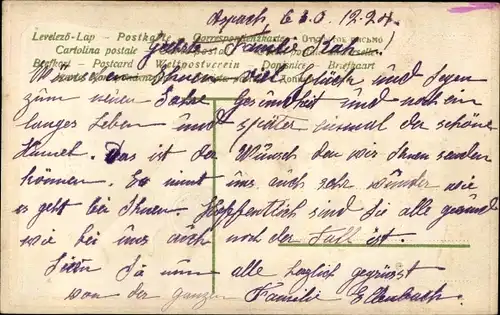 Aspach 30.12.20.
Levelező-Lap - Postkarte - Correspondenzkarte -
Cartolina postale -
Geehrte Familie
Brefkort - Postcard - Weltpostverein - Dopisnice - Briefkaart
Wünschen Ihnen viel Glück und Segen
zum neuen Jahr Gesundheit und noch ein
langes Leben und später einmal der schöne
Himmel. Das ist der Wunsch den wir Ihnen senden
können. Es nimt uns auch sehr wunder wie
es geht bei Ihnen. Hopfentlich sind Sie alle gesund
wie bei uns auch noch der Fall ist.
Seien Sie nun alle herzlich gegrüsst
von der ganzen Familie Ellenbach.